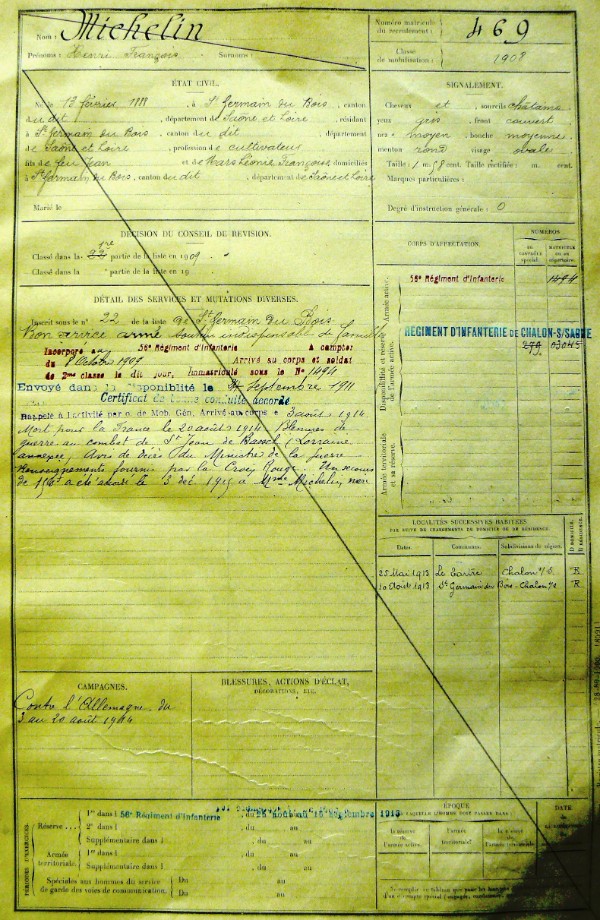 Nom : Michelin
Prénoms : Henri François Surnoms :
Numéro matricule du recrutement : 469
Classe de mobilisation : 1908
ÉTAT CIVIL.
Né le 13 février 1888, à St Germain du Bois, canton
du dit, département de Saône et Loire, résidant
à St Germain du Bois, canton du dit, département
de Saône et Loire, profession de cultivateur
fils de feu Jean et de Françoise domiciliés
à St Germain du Bois, canton du dit, département de Saône et Loire
Marié le
SIGNALEMENT.
Cheveux et sourcils châtains
yeux gris front couvert
nez moyen bouche moyenne
menton rond visage ovale
Taille : 1 m. 58 cent. Taille rectifiée : m. cent.
Marques particulières :
Degré d'instruction générale : 0
DÉCISION DU CONSEIL DE REVISION.
Classé dans la 1re partie de la liste en 1909
Classé dans la partie de la liste en 19
DÉTAIL DES SERVICES ET MUTATIONS DIVERSES.
Inscrit sous le n° 22 de la liste de St Germain du Bois
Bon service armé soutien indispensable de famille
Incorporé au 56e Régiment d'Infanterie à compter
du 8 Octobre 1909 Arrivé au corps et soldat
de 2me classe le dit jour, immatriculé sous le N° 1494
Envoyé dans la disponibilité le Septembre 1911
Certificat de bonne conduite accordé
Rappelé à l'activité par o. de Mob. Gén. Arrivé au corps le 3 août 1914
Mort pour la France le 20 août 1914. Blessures de
guerre au combat de St Jean de Bassel (Lorraine
annexée) Avis de décès du Ministre de la guerre
Renseignements fournis par la Croix Rouge. Un secours
de 150f a été accordé le 3 déc 1915 à Mme Michelin, mère
CORPS D'AFFECTATION.
NUMÉROS
au contrôle spécial.
matricule ou au répertoire.
Armée active.
56e Régiment d'Infanterie 1494
Disponibilité et réserve de l'armée active.
REGIMENT D'INFANTERIE DE CHALON-S/SAONE 03045
Armée territoriale et sa réserve.
LOCALITÉS SUCCESSIVES HABITÉES
PAR SUITE DE CHANGEMENTS DE DOMICILE OU DE RÉSIDENCE.
Dates Communes. Subdivisions de région. D domicile. R résidence.
25 Mai 1913 Le Tartre Chalon s/S R
10 Août 1913 St Germain du Bois Chalon s/S R
CAMPAGNES.
Contre l'Allemagne du
3 au 20 août 1914
BLESSURES, ACTIONS D'ÉCLAT,
DÉCORATIONS, ETC.
PÉRIODES D'EXERCICES.
Réserve
1re dans l 56e Régiment d'Infanterie, du 25 août au 16 Septembre 1913
2e dans l , du au
Supplémentaire dans l , du au
Armée territoriale.
1re dans l , du au
Supplémentaire dans l , du au
Spéciales aux hommes du service de garde des voies de communication.
Du au
Du au
ÉPOQUE
À LAQUELLE L'HOMME DOIT PASSER DANS :
la réserve de l'armée active.
l'armée territoriale.
la réserve de l'armée territoriale.
DATE